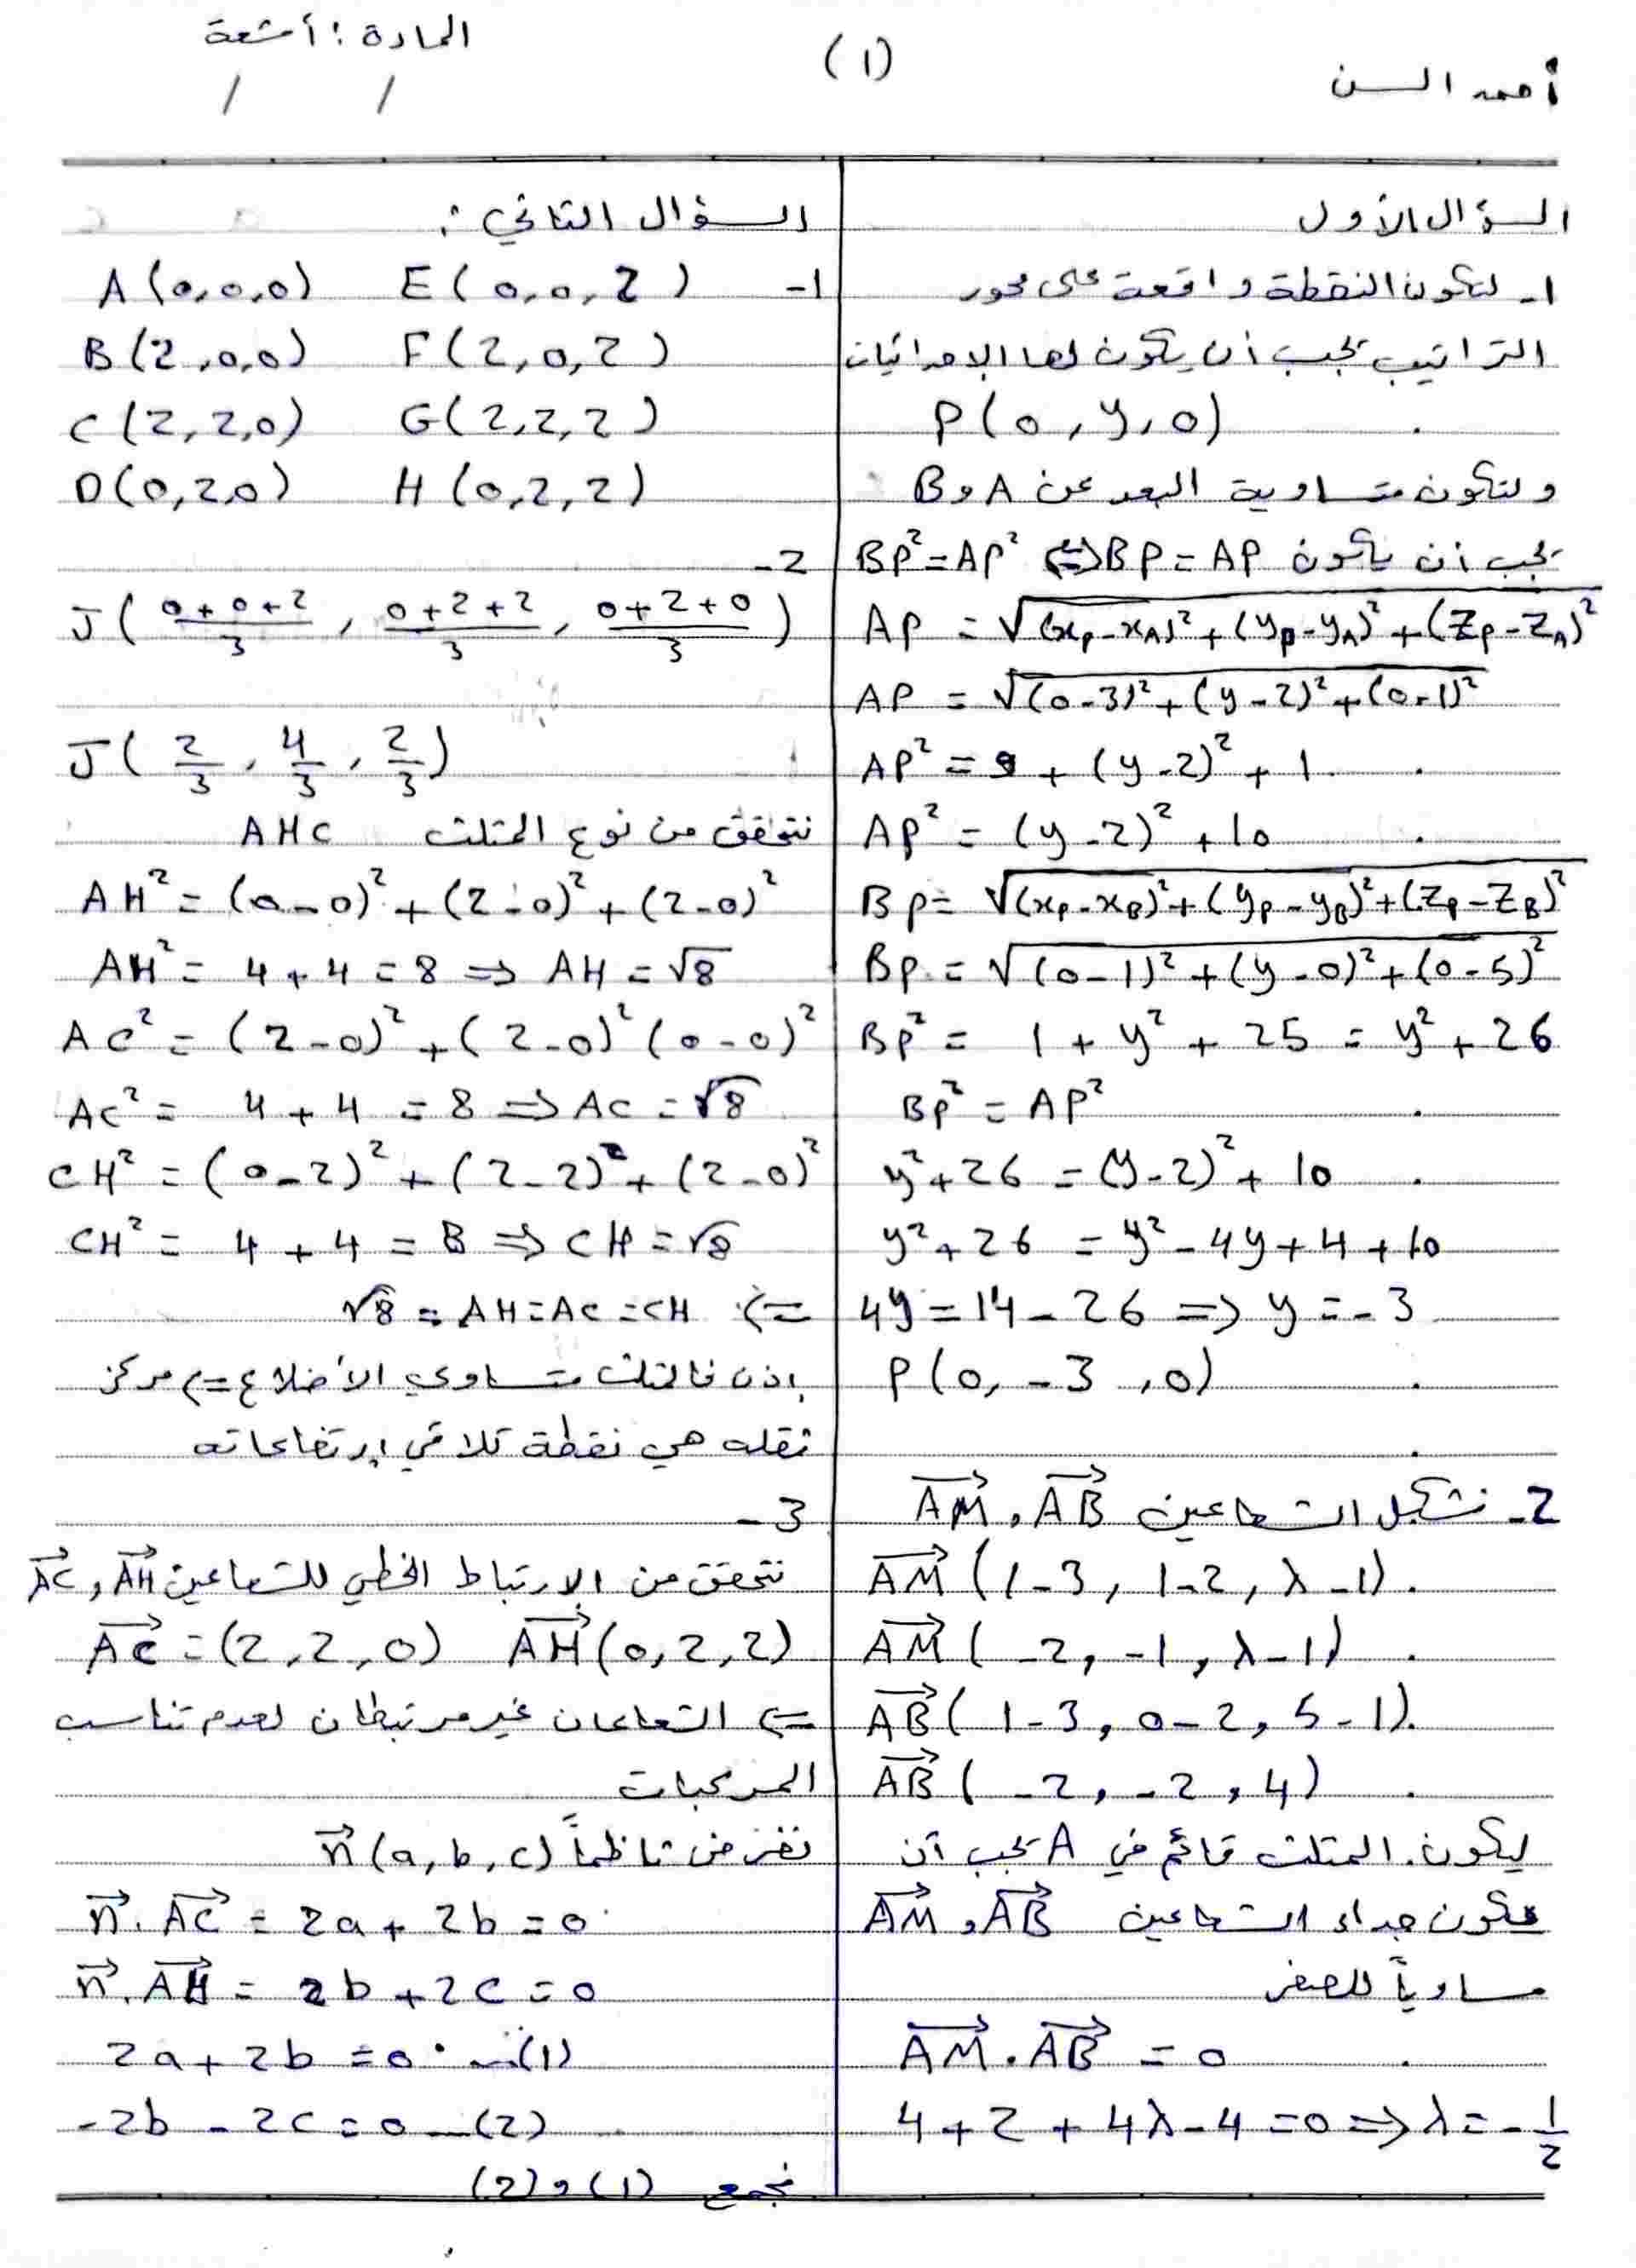 المادة : أشعة
(١)
أحمد السن
/ /
السؤال الأول
١- لتكون النقطة واقعة على محور
التراتيب يجب أن يكون لها الإحداثيات
P(0, y, 0)
ولتكون متساوية البعد عن A و B
يجب أن يكون BP = AP ⇔ BP² = AP²
AP = √(xₚ-x_A)² + (yₚ-y_A)² + (zₚ-z_A)²
AP = √(0-3)² + (y-2)² + (0-1)²
AP² = 9 + (y-2)² + 1
AP² = (y-2)² + 10
BP = √(xₚ-x_B)² + (yₚ-y_B)² + (zₚ-z_B)²
BP = √(0-1)² + (y-0)² + (0-5)²
BP² = 1 + y² + 25 = y² + 26
BP² = AP²
y² + 26 = (y-2)² + 10
y² + 26 = y² - 4y + 4 + 10
4y = 14 - 26 => y = -3
P(0, -3, 0)
2- نشكل الشعاعين AB→ , AM→
AM→ (1-3, 1-2, λ-1)
AM→ (-2, -1, λ-1)
AB→ (1-3, 0-2, 5-1)
AB→ (-2, -2, 4)
ليكون المثلث قائم في A يجب أن
يكون جداء الشعاعين AB→ و AM→
مساوياً للصفر
AM→ . AB→ = 0
4 + 2 + 4λ - 4 = 0 => λ = -1/2
السؤال الثاني :
١- A(0,0,0) E(0,0,2)
B(2,0,0) F(2,0,2)
C(2,2,0) G(2,2,2)
D(0,2,0) H(0,2,2)
2-
J( (0+0+2)/3 , (0+2+2)/3 , (0+2+0)/3 )
J( 2/3 , 4/3 , 2/3 )
نتحقق من نوع المثلث AHC
AH² = (0-0)² + (2-0)² + (2-0)²
AH² = 4 + 4 = 8 => AH = √8
AC² = (2-0)² + (2-0)² (0-0)²
AC² = 4 + 4 = 8 => AC = √8
CH² = (0-2)² + (2-2)² + (2-0)²
CH² = 4 + 4 = 8 => CH = √8
<= √8 = AH = AC = CH
إذن فالمثلث متساوي الأضلاع <= مركز
ثقله هي نقطة تلاقي ارتفاعاته
3-
نتحقق من الارتباط الخطي للشعاعين AH→ و AC→
AC→ = (2, 2, 0) AH→ (0, 2, 2)
<= الشعاعان غير مرتبطان لعدم تناسب
المركبات
نفرض ناظماً n→(a, b, c)
n→ . AC→ = 2a + 2b = 0
n→ . AH→ = 2b + 2c = 0
2a + 2b = 0 ...(1)
-2b - 2c = 0 ...(2)
نجمع (1) و (2)